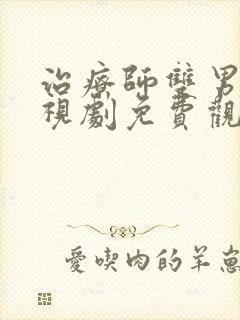 治療師雙男
視劇免費觀
愛喫肉的羊崽